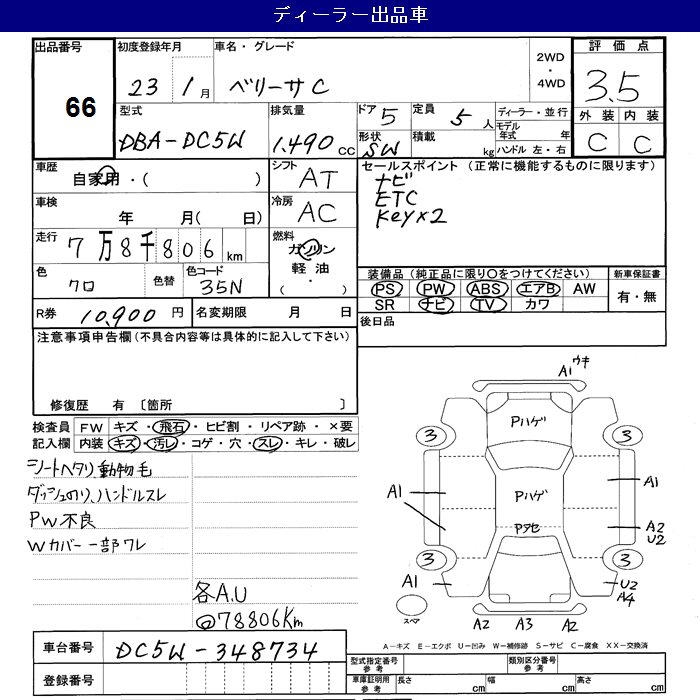 ディーラー出品車
出品番号 66
初度登録年月 23 1月
車名・グレード ベリーサC
2WD・4WD
評価点 3.5
外装 C 内装 C
型式 DBA-DC5W
排気量 1.490cc
ドア 5
形状 SW
定員 5人
積載 kg
ディーラー・並行
モデル年式 年
ハンドル 左・右
車歴 自家用・( )
シフト AT
セールスポイント (正常に機能するものに限ります)
ナビ
ETC
Key×2
車検 年 月( 日)
冷房 AC
走行 7万8千806km
燃料 ガソリン 軽油・( )
色 クロ 色替 色コード 35N
装備品(純正品に限り○をつけてください)
PS PW ABS エアB AW
SR ナビ TV カワ
新車保証書 有・無
R券 10,900円
名変期限 月 日
後日品
注意事項申告欄(不具合内容等は具体的に記入して下さい)
修復歴 有 〔箇所 〕
検査員記入欄
FW キズ・飛石・ヒビ割・リペア跡・×要
内装 キズ・汚レ・コゲ・穴・スレ・キレ・破レ
シートヘタリ、動物毛
ダッシュのり、ハンドルスレ
PW不良
Wカバー一部ワレ
各A.U
@78806Km
A1 ウキ
Pハゲ
3 3
A1 Pハゲ A1
Pアセ A2 U2
3 3
A1 U2 A4
スペア
A2 A3 A2
車台番号 DC5W-348734
登録番号
A-キズ E-エクボ U-凹み W-補修跡 S-サビ C-腐食 XX-交換済
型式指定番号 参考 類別区分番号 参考
車庫証明用 参考 長さ cm 幅 cm 高さ cm